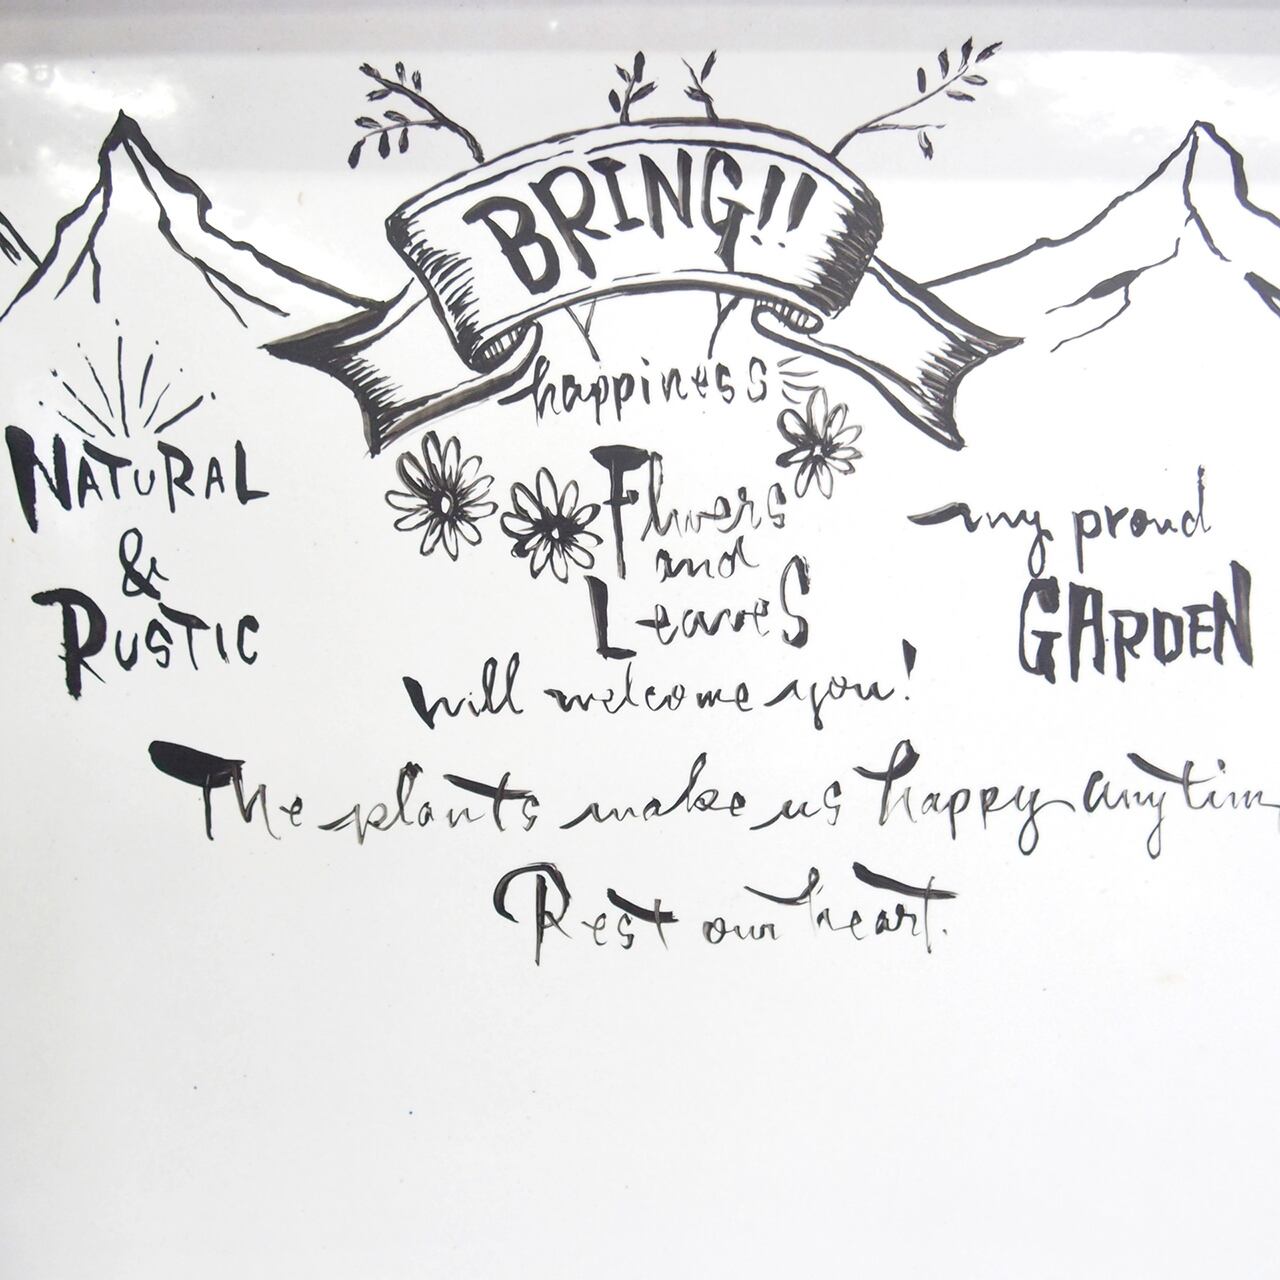 BRING!!
happiness
NATURAL
&
RUSTIC
Flwers
and
LeaveS
will welcome you!
my proud
GARDEN
The plants make us happy anytim
Rest our heart.